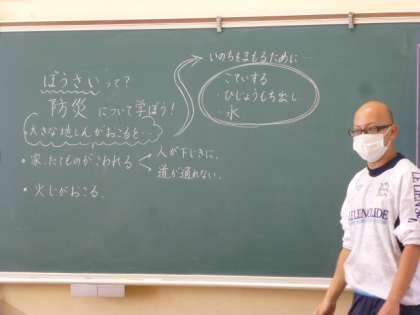 ぼうさいって?
防災について学ぼう!
大きな地しんがおこると…
・家、たてものがこわれる
人が下じきに、
道が通れない。
・火じがおこる。
いのちをまもるために…
・こていする
・ひじょうもち出し
・水